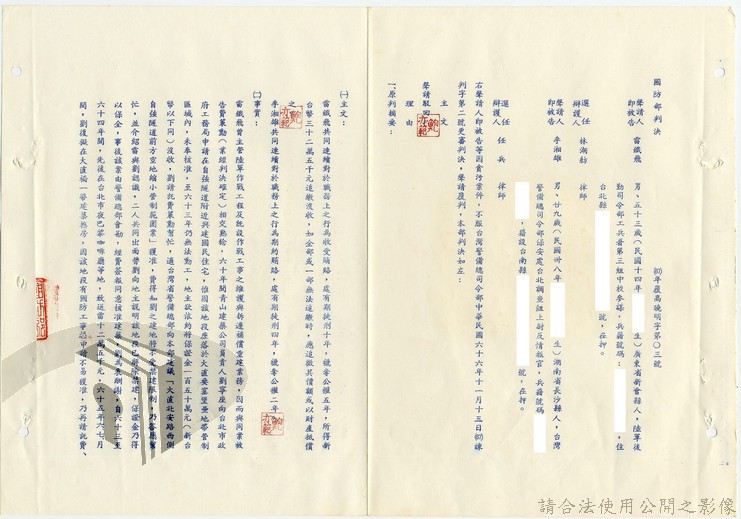 國防部判決
(67)年覆高曉明字第〇三號
聲請人即被告 雷鐵飛 男、五十三歲(民國十四年 生)廣東省新會縣人,陸軍後
勤司令部工兵署第三組中校參謀,兵籍號碼: ,住
台北縣 號,在押。
選任辯護人 林湖舫 律師
聲請人即被告 李湘雄 男、廿九歲(民國卅八年 生)湖南省長沙縣人,台灣
警備總司令部保安處台北調查組上尉反情報官,兵籍號碼
,籍設台南縣 號,在押。
選任辯護人 任兵 律師
右聲請人即被告等因貪污案件,不服台灣警備總司令部中華民國六十六年十一月十三日(66)諫
判字第二號更審判決,聲請覆判,本部判決如左:
主文
聲請駁回
理由
一、原判摘要:
(一)主文:
雷鐵飛共同連續對於職務上之行為收受賄賂,處有期徒刑十年,褫奪公權五年,所得新
台幣三十二萬五千元追繳沒收,如全部或一部無法追繳時,應追徵其價額或以財產抵償
之
李湘雄共同連續對於職務上之行為期約賄賂,處有期徒刑四年,褫奪公權二年
(二)事實:
雷鐵飛曾主管陸軍作戰工程及既設作戰工事之維護與拆遷補償重建業務,因而與同案被
告費業勤(業經判決確定)相交熟稔,六十年間青山建築公司負責人劉 座向台北市政
府工務局申請在自強隧道附近興建國民住宅,惟因該地段座落於大直要塞堡壘地帶管制
區域內,未奉核准,至六十三年仍無法動工,地主欲依約將保證金一百五十萬元(新台
幣以下同)沒收,劉請託費業勤幫忙,適台灣省警備總部向本部建議「大直北安路西側
自強隧道前方空地縮小管制範圍案」獲准,費得知劉之建地將不受禁建限制,乃答應幫
忙,並介紹雷與劉認識,二人共同出面帶劉向地主說明該地段已解除禁建,保證金乃得
以保全,事後該案由警備總部會勘,經費簽報同意核准建築,劉為表酬謝,自六十三至
六十四年間,先後在台北市夜巴黎咖啡廳等地,致送雷十二萬五千元,六十五年六七月
間,劉復擬在大直福一等建築樓房,因該地段有國防工事恐申請不易獲准,乃再請託費、
請合法使用公開之影像